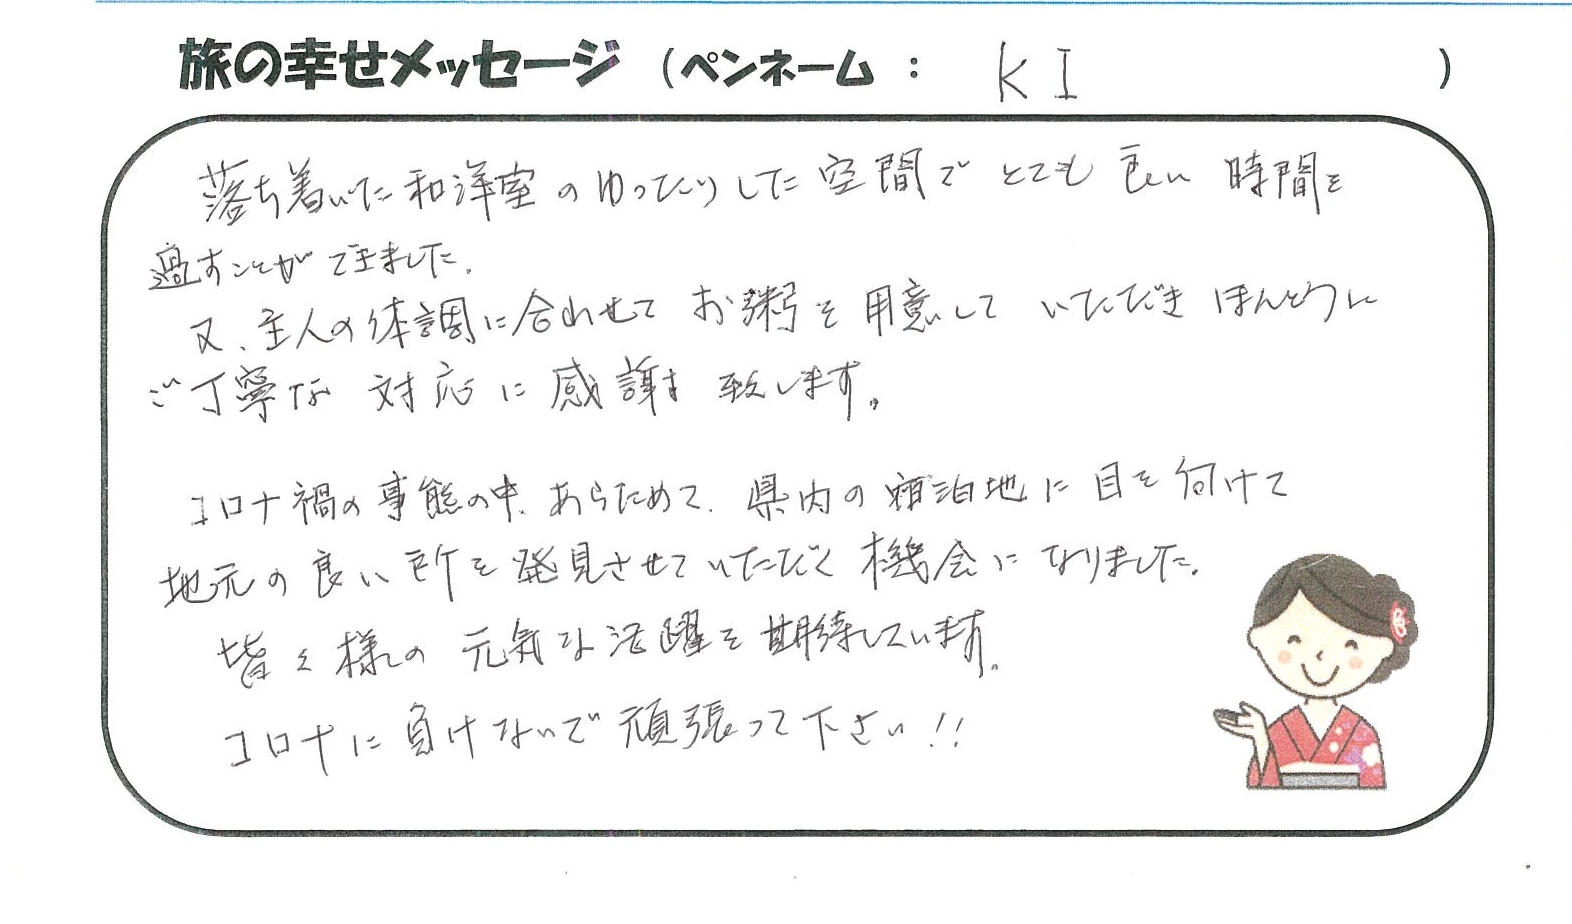 旅の幸せメッセージ（ペンネーム： KI ）
落ち着いた和洋室のゆったりした空間でとても良い時間を
過すことができました。
又、主人の体調に合わせてお粥を用意していただきほんとうに
ご丁寧な対応に感謝致します。
コロナ禍の事態の中、あらためて、県内の宿泊地に目を向けて
地元の良い所を発見させていただく機会になりました。
皆々様の元気な活躍を期待しています。
コロナに負けないで頑張って下さい!!